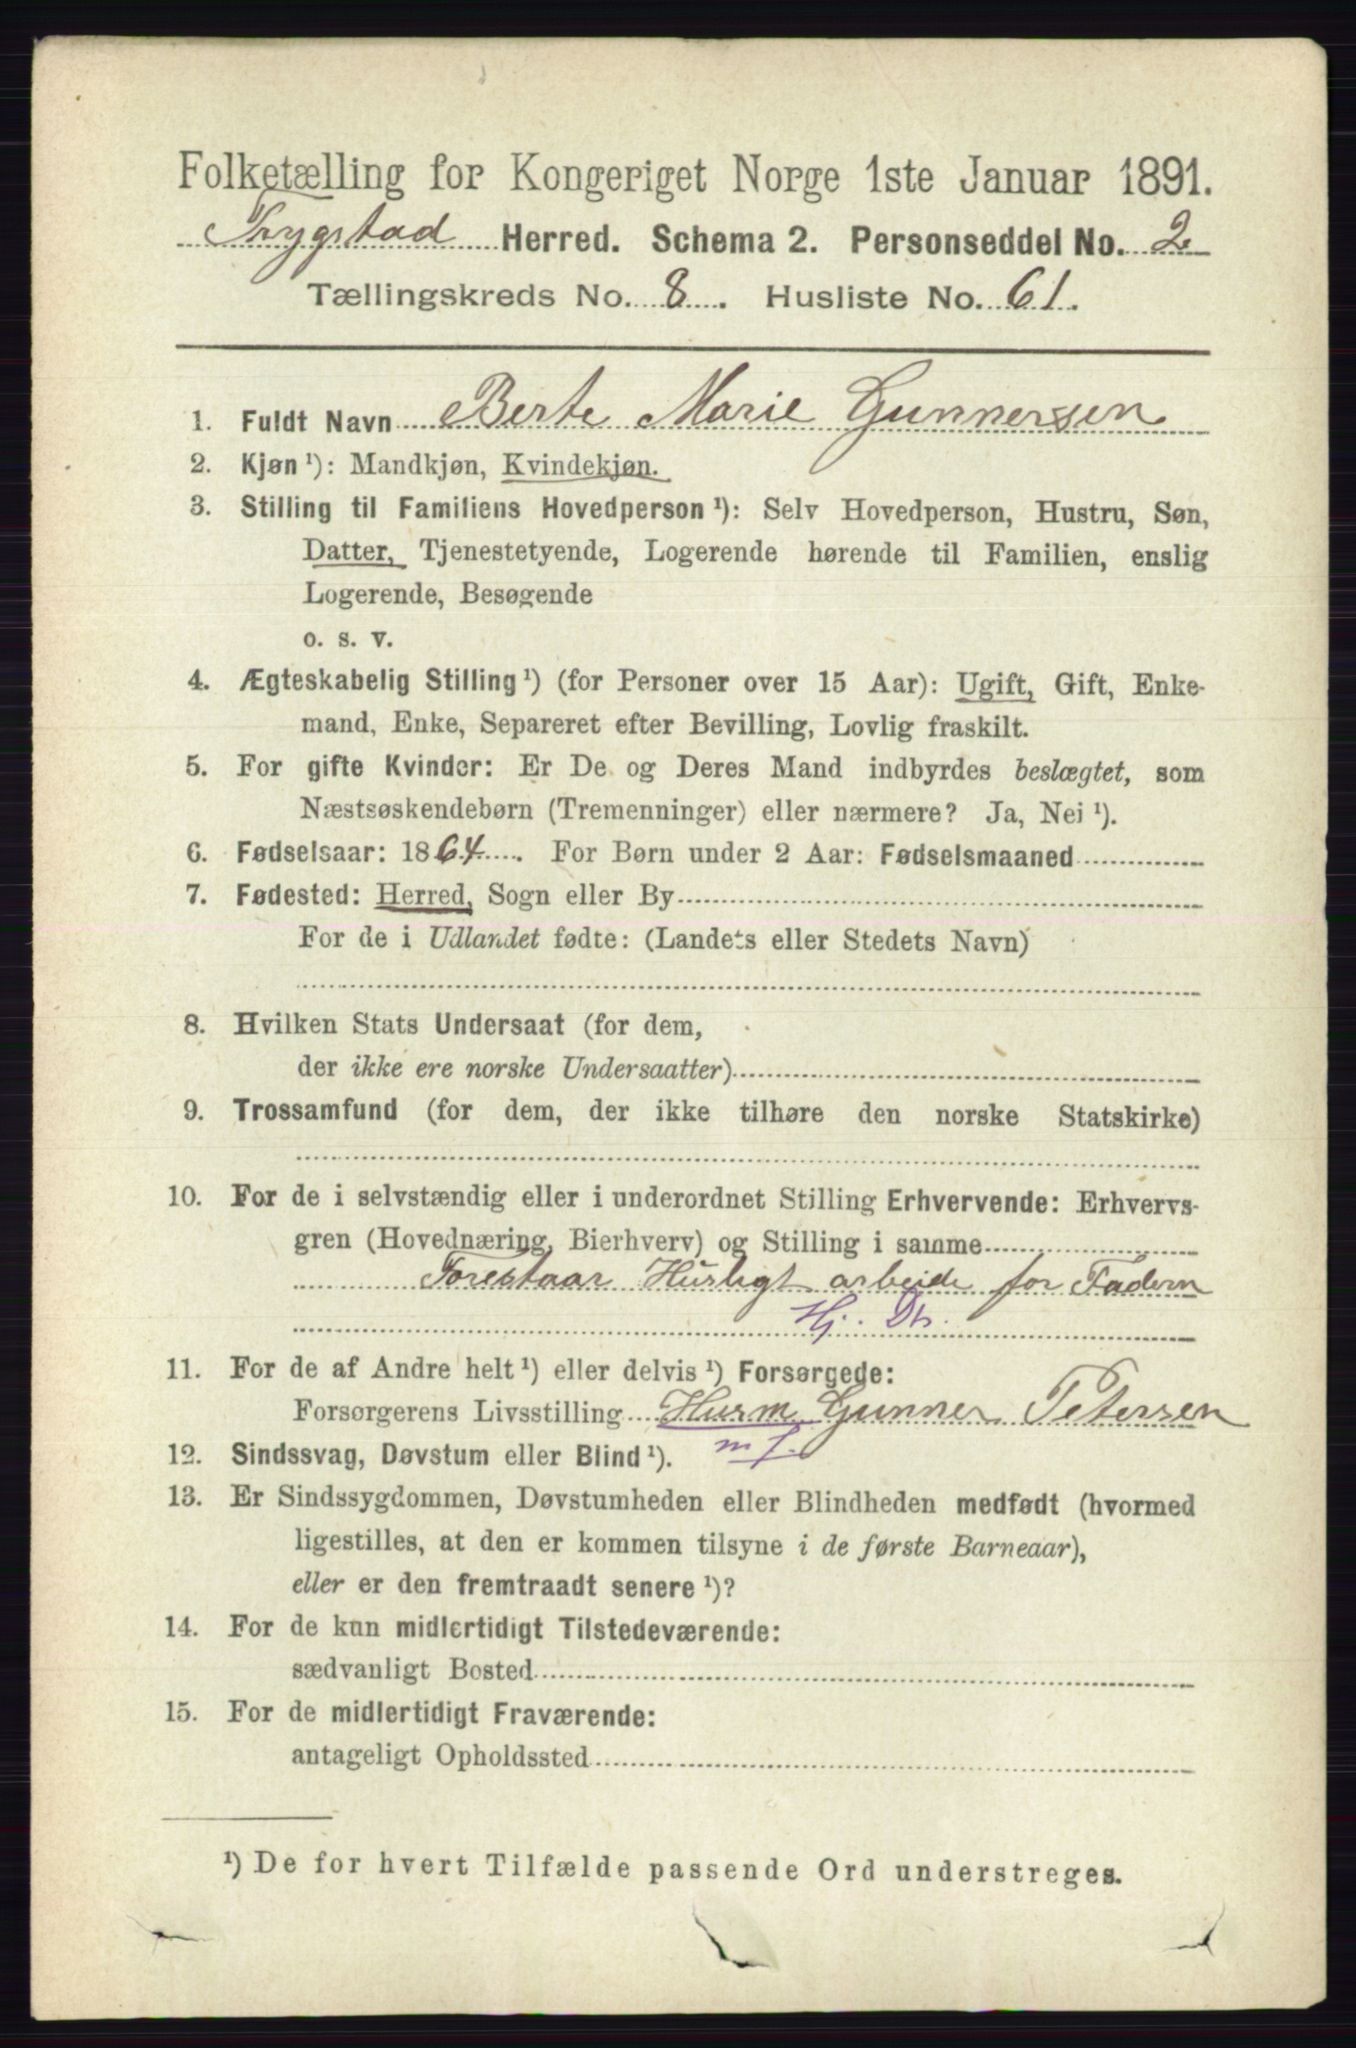 Folketælling for Kongeriget Norge 1ste Januar 1891.
Trygstad Herred. Schema 2. Personseddel No. 2
Tællingskreds No. 8. Husliste No. 61.
1. Fuldt Navn Berte Marie Gunnersen
2. Kjøn ¹): Mandkjøn, Kvindekjøn.
3. Stilling til Familiens Hovedperson ¹): Selv Hovedperson, Hustru, Søn,
Datter, Tjenestetyende, Logerende hørende til Familien, enslig
Logerende, Besøgende
o. s. v.
4. Ægteskabelig Stilling ¹) (for Personer over 15 Aar): Ugift, Gift, Enke-
mand, Enke, Separeret efter Bevilling, Lovlig fraskilt.
5. For gifte Kvinder: Er De og Deres Mand indbyrdes beslægtet, som
Næstsøskendebørn (Tremenninger) eller nærmere? Ja, Nei ¹).
6. Fødselsaar: 1864. For Børn under 2 Aar: Fødselsmaaned
7. Fødested: Herred, Sogn eller By
For de i Udlandet fødte: (Landets eller Stedets Navn)
8. Hvilken Stats Undersaat (for dem,
der ikke ere norske Undersaatter)
9. Trossamfund (for dem, der ikke tilhøre den norske Statskirke)
10. For de i selvstændig eller i underordnet Stilling Erhvervende: Erhvervs-
gren (Hovednæring, Bierhverv) og Stilling i samme
Forestaar Husligt arbeide for Fadern
Hj. Dtr.
11. For de af Andre helt ¹) eller delvis ¹) Forsørgede:
Forsørgerens Livsstilling Husm Gunner Petersen
m f.
12. Sindssvag, Døvstum eller Blind ¹).
13. Er Sindssygdommen, Døvstumheden eller Blindheden medfødt (hvormed
ligestilles, at den er kommen tilsyne i de første Barneaar),
eller er den fremtraadt senere ¹)?
14. For de kun midlertidigt Tilstedeværende:
sædvanligt Bosted
15. For de midlertidigt Fraværende:
antageligt Opholdssted
¹) De for hvert Tilfælde passende Ord understreges.